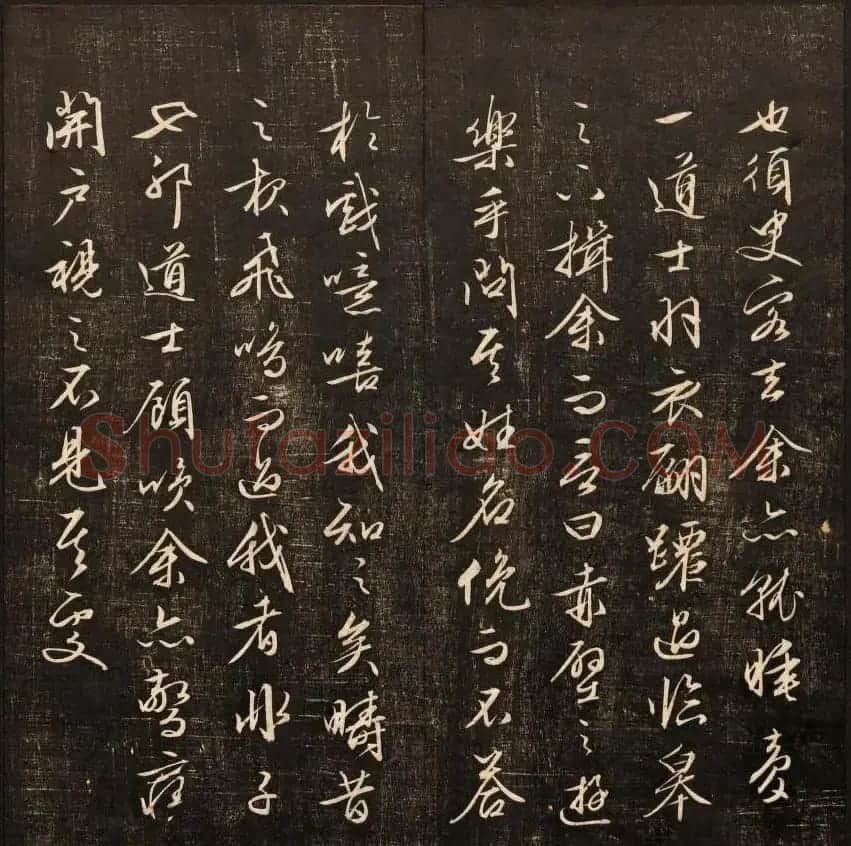 也須臾客去余亦就睡夢
一道士羽衣翩躚過臨皋
之下揖余而言曰赤壁之遊
樂乎問其姓名俛而不答
於戲噫嘻我知之矣疇昔
之夜飛鳴而過我者非子
也邪道士顧咲余亦驚寤
開戶視之不見其處
Shufaziliao.COM